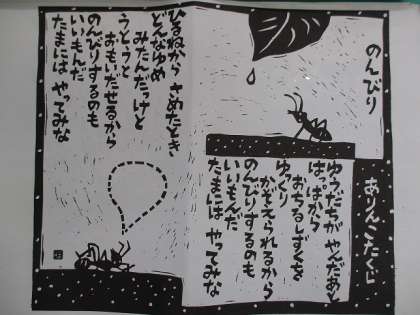 のんびり
ありんこたくじ
ゆうだちが やんだあと
はっぱから
おちるしずくを
ゆっくり
かぞえられるから
のんびりするのも
いいもんだ
たまには やってみな
ひるねから さめたとき
どんなゆめ
みたんだっけと
うとうと
おもいだせるから
のんびりするのも
いいもんだ
たまには やってみな